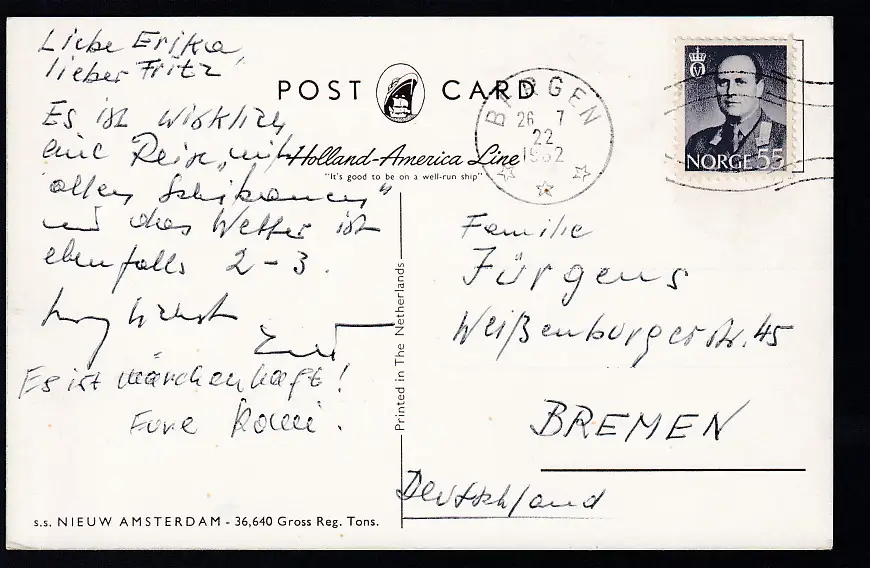 Liebe Erika,
lieber Fritz!
Es ist wirklich
eine Reise „mit
allen Schikanen"
und das Wetter ist
ebenfalls 2-3.
herzlichst
Es ist märchenhaft!
Eure
POST CARD
Holland-America Line
"It's good to be on a well-run ship"
BERGEN
26 7
22
1962
NORGE 55
Familie
Jürgens
Weißenburgerstr. 45
BREMEN
Deutschland
Printed in The Netherlands
s.s. NIEUW AMSTERDAM - 36,640 Gross Reg. Tons.